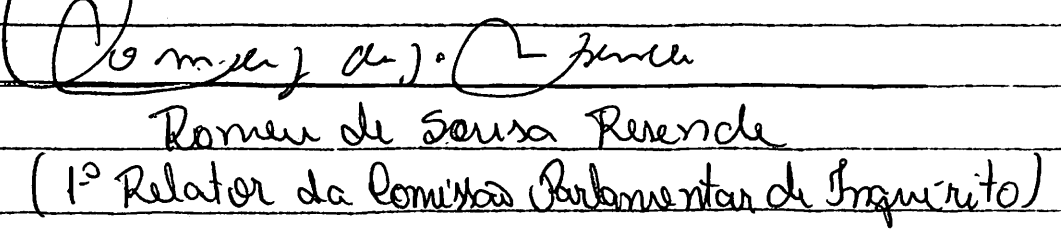 Romeu de Sousa Resende
(1º Relator da Comissão Parlamentar de Inquérito)